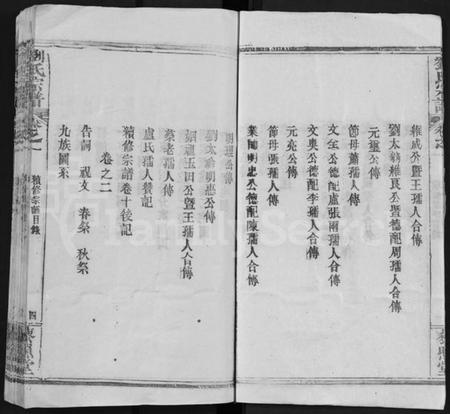 維成公暨王孺人合傳
劉太翁維良公暨德配周孺人合傳
元璽公傳
節母蕭孺人傳
文全公德配盧張兩孺人合傳
文奧公德配李孺人合傳
元亮公傳
節母張孺人傳
業師明忠公德配陳孺人合傳
明理公傳
劉太翁明忠公傳
姻翁玉田公暨王孺人合傳
蔡老孺人傳
盧氏孺人贊記
續修宗譜卷十後記
卷之二
告詞 祝文 春祭 秋祭
九族圖系
續修宗譜目錄
四
劉氏宗譜
卷之一
FamilySearch